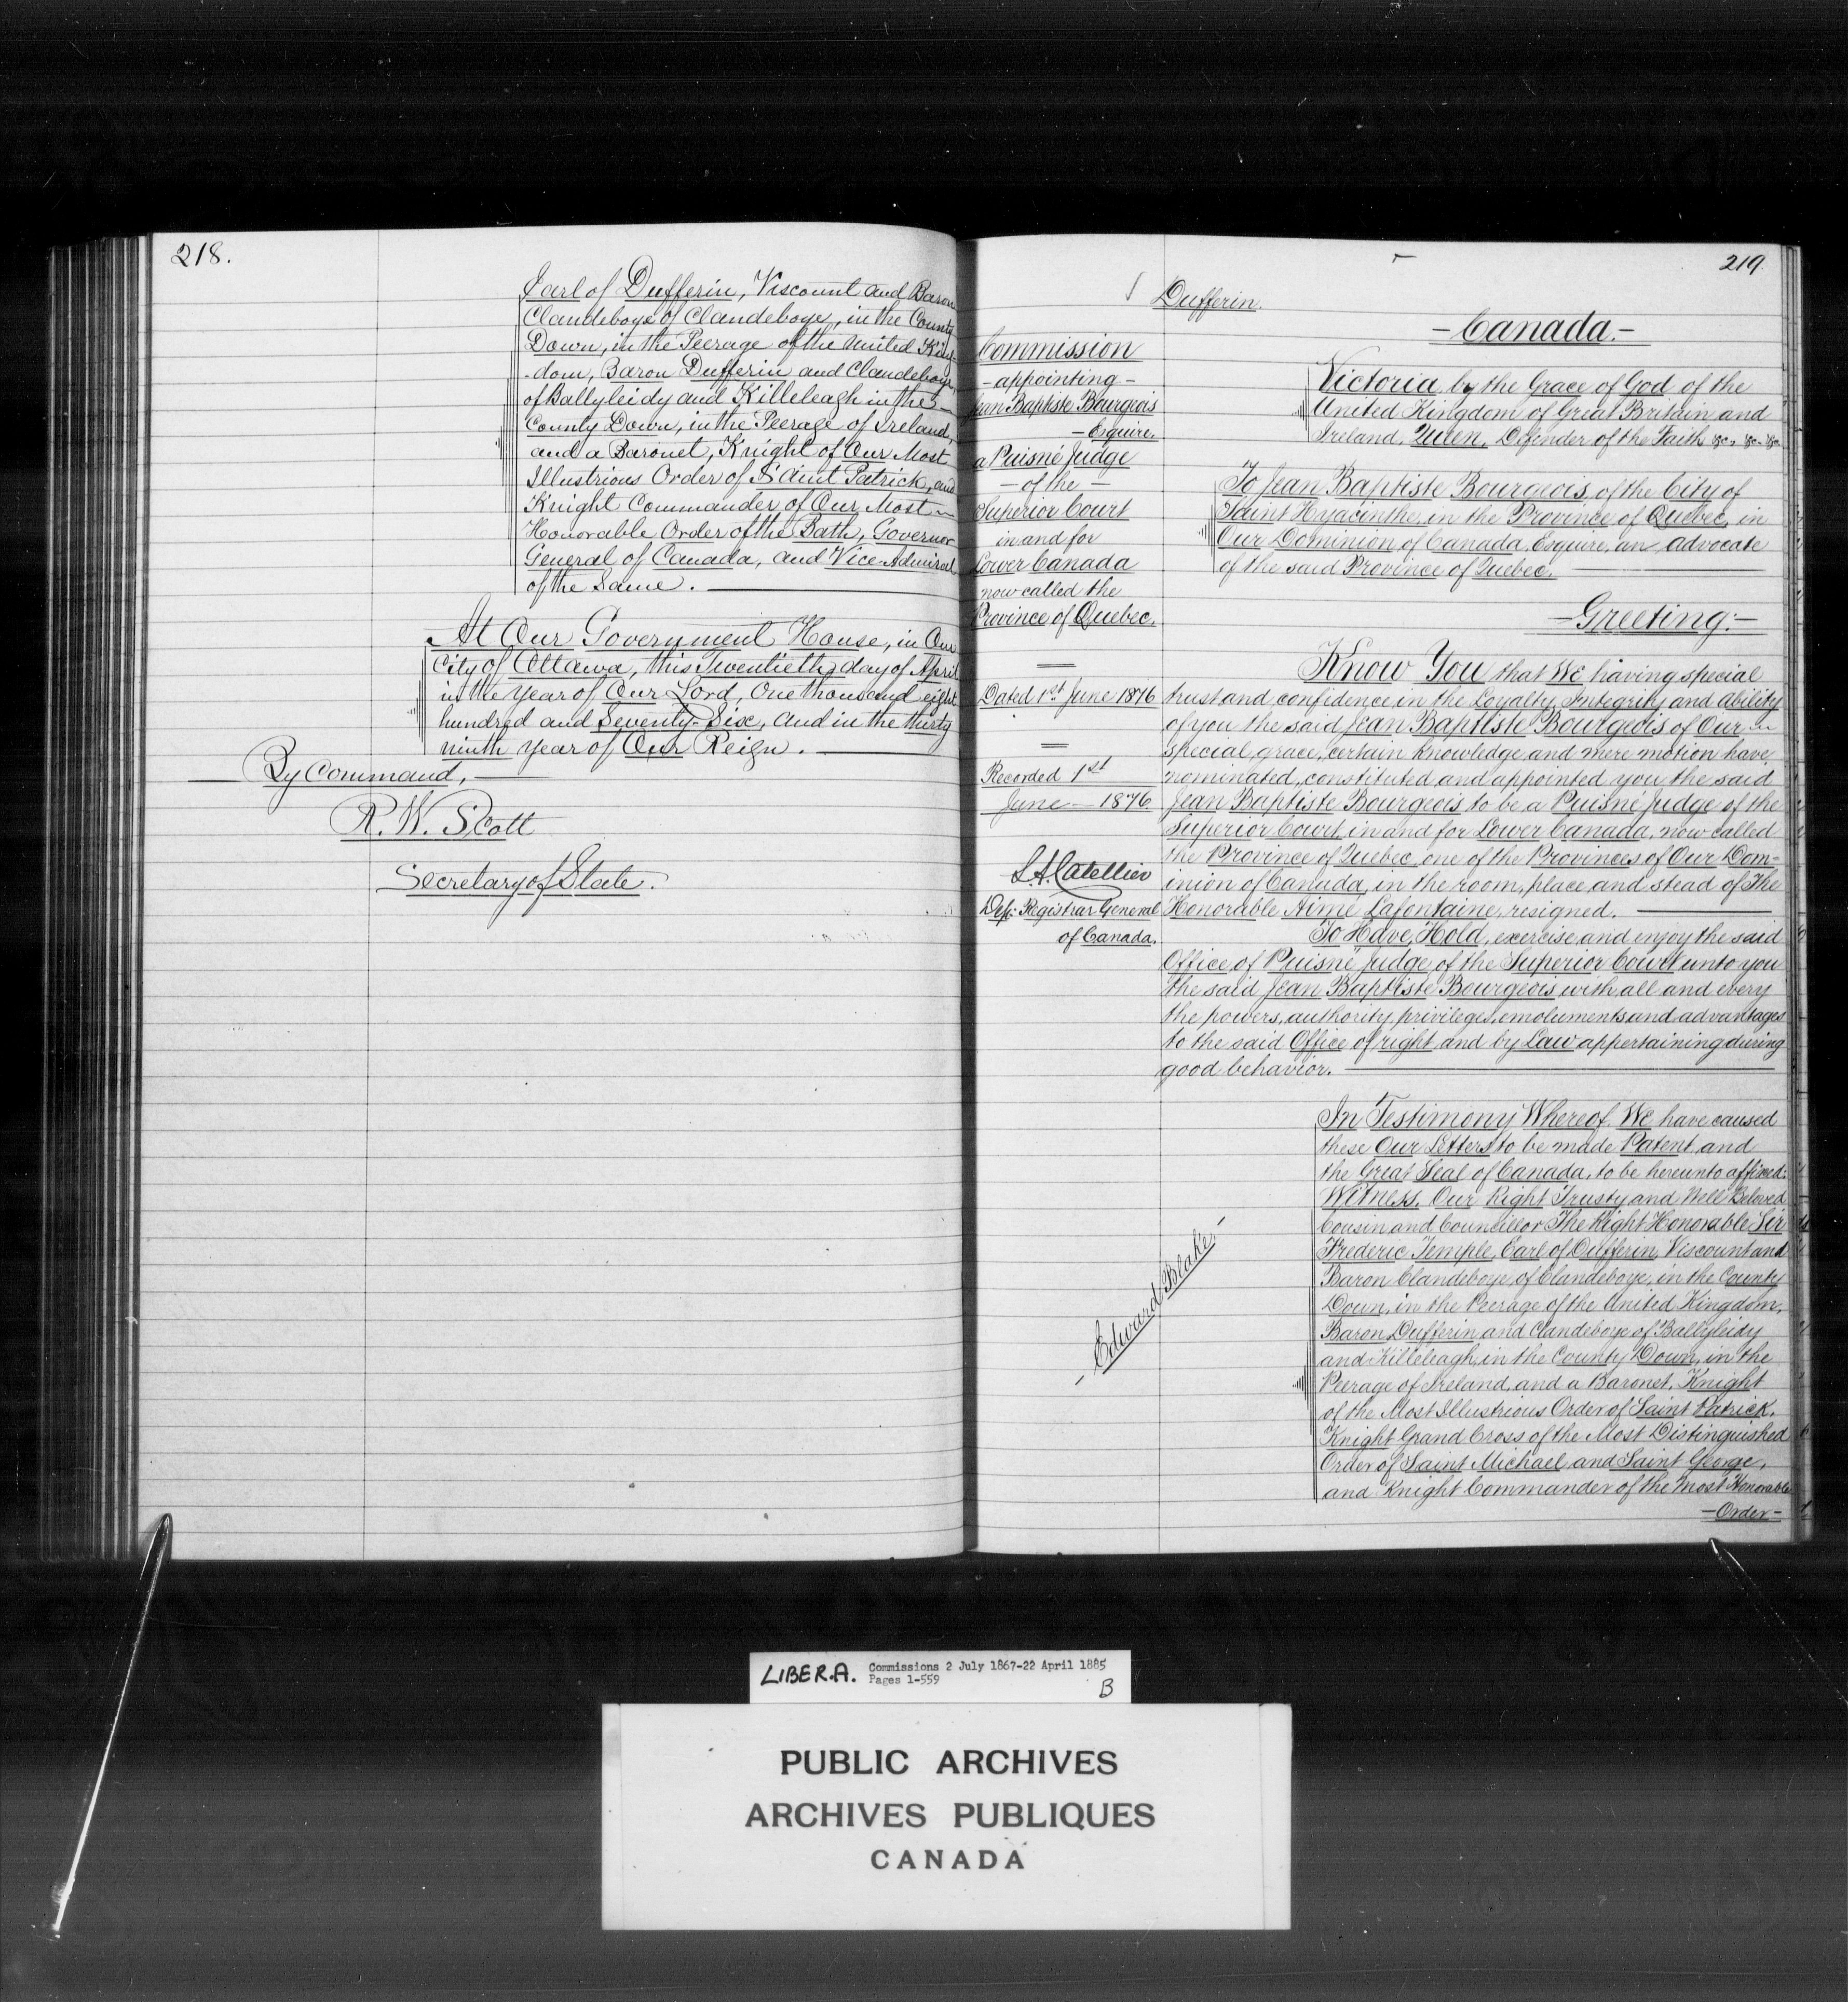 218.
Earl of Dufferin, Viscount and Baron
Clandeboye of Clandeboye, in the County
Down, in the Peerage of the United King-
-dom, Baron Dufferin and Clandeboye,
of Ballyleidy and Killeleagh in the
County Down, in the Peerage of Ireland,
and a Baronet, Knight of Our Most
Illustrious Order of Saint Patrick, and
Knight Commander of Our Most
Honorable Order of the Bath, Governor
General of Canada, and Vice-Admiral
of the Same.
At Our Government House, in Our
City of Ottawa, this Twentieth day of April
in the Year of Our Lord, One thousand eight
hundred and Seventy-Six, and in the thirty
ninth Year of Our Reign.
By Command,
R. W. Scott
Secretary of State.
219
Dufferin.
Commission
- appointing -
Jean Baptiste Bourgeois
- Esquire.
a Puisné Judge
- of the -
Superior Court
in and for
Lower Canada
now called the
Province of Quebec.
Dated 1st June 1876
Recorded 1st
June - 1876
L. A. Catellier
Dep: Registrar General
of Canada.
- Canada. -
Victoria by the Grace of God of the
United Kingdom of Great Britain and
Ireland, Queen, Defender of the Faith &c. &c. &c.
To Jean Baptiste Bourgeois, of the City of
Saint Hyacinthe, in the Province of Quebec, in
Our Dominion of Canada, Esquire, an Advocate
of the said Province of Quebec.
- Greeting: -
Know You that We having special
trust and confidence in the Loyalty, Integrity and ability
of you the said Jean Baptiste Bourgeois of Our
special grace, certain knowledge and mere motion have
nominated, constituted and appointed you the said
Jean Baptiste Bourgeois to be a Puisné Judge of the
Superior Court in and for Lower Canada, now called
the Province of Quebec, one of the Provinces of Our Dom-
inion of Canada, in the room, place and stead of The
Honorable Aimé Lafontaine, resigned.
To Have, Hold, exercise and enjoy the said
Office of Puisné Judge of the Superior Court unto you
the said Jean Baptiste Bourgeois with all and every
the powers, authority, privileges, emoluments and advantages
to the said Office of right and by Law appertaining during
good behavior.
In Testimony Whereof, We have caused
these Our Letters to be made Patent, and
the Great Seal of Canada, to be hereunto affixed:
Witness, Our Right Trusty and Well Beloved
Cousin and Councillor The Right Honorable Sir
Frederic Temple, Earl of Dufferin, Viscount and
Baron Clandeboye of Clandeboye, in the County
Down, in the Peerage of the United Kingdom,
Baron Dufferin and Clandeboye of Ballyleidy
and Killeleagh, in the County Down, in the
Peerage of Ireland, and a Baronet, Knight
of the Most Illustrious Order of Saint Patrick,
Knight Grand Cross of the Most Distinguished
Order of Saint Michael and Saint George,
and Knight Commander of the Most Honorable
- Order -
- Edward Blake -
LIBER.A. Commissions 2 July 1867-22 April 1885
Pages 1-559
B
PUBLIC ARCHIVES
ARCHIVES PUBLIQUES
CANADA